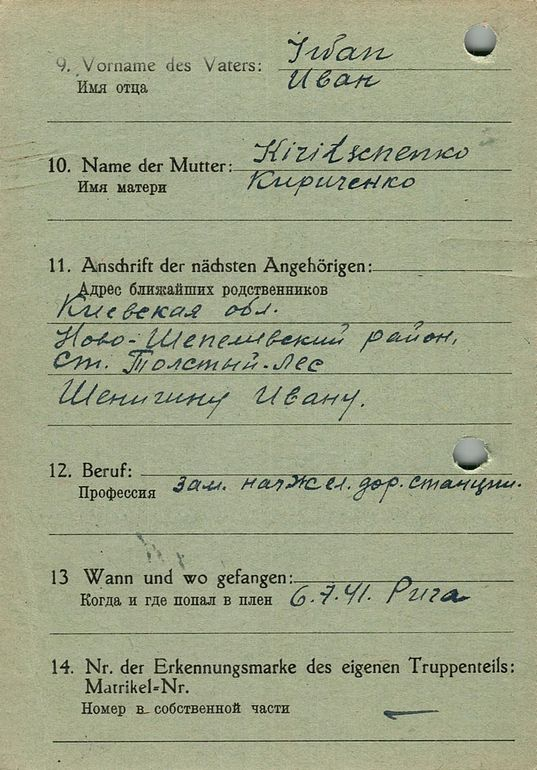 Iwan
9. Vorname des Vaters:
Иван
Имя отца
Kiritschenko
10. Name der Mutter:
Кириченко
Имя матери
11. Anschrift der nächsten Angehörigen:
Адрес ближайших родственников
Киевская обл.
Ново-Шепелевский район,
ст. Толстый-Лес
Шенигину Ивану.
12. Beruf:
зам. нач жел. дор. станции.
Профессия
13 Wann und wo gefangen:
6.7.41. Рига
Когда и где попал в плен
14. Nr. der Erkennungsmarke des eigenen Truppenteils:
Matrikel-Nr.
Номер в собственной части
—